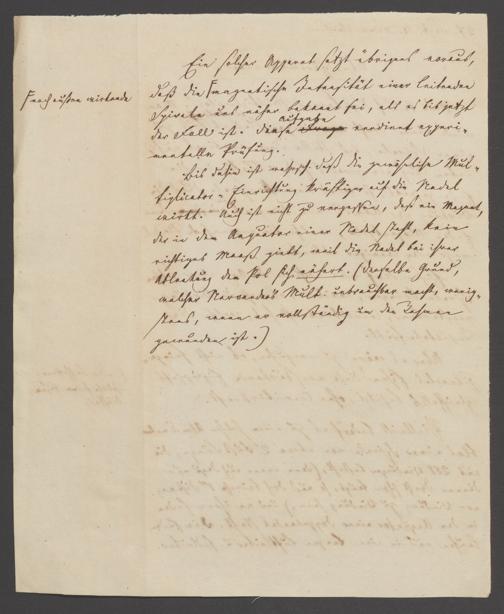 Ein solcher Apparat setzt übrigens voraus,
daß die magnetische Intensität einer leitenden
Γ nach außen wirkende
Spirale uns näher bekannt sei, als es bis jetzt
der Fall ist. Diese Aufgabe verdient experi-
mentelle Prüfung.
Bis dahin ist daß die gewöhnliche Mul-
tiplicator-Einrichtung kräftiger auf die Nadel
wirkt. Auch ist nicht zu vergessen, daß ein Magnet,
der in dem Aequator einer Nadel steht, kein
richtiges Maaß giebt, weil die Nadel bei ihrer
Ablenkung dem Pol sich nähert. (Derselbe Grund,
welcher Mult. unbrauchbar macht, wenig-
stens, wenn er vollständig um den Rahmen
gewunden ist.)